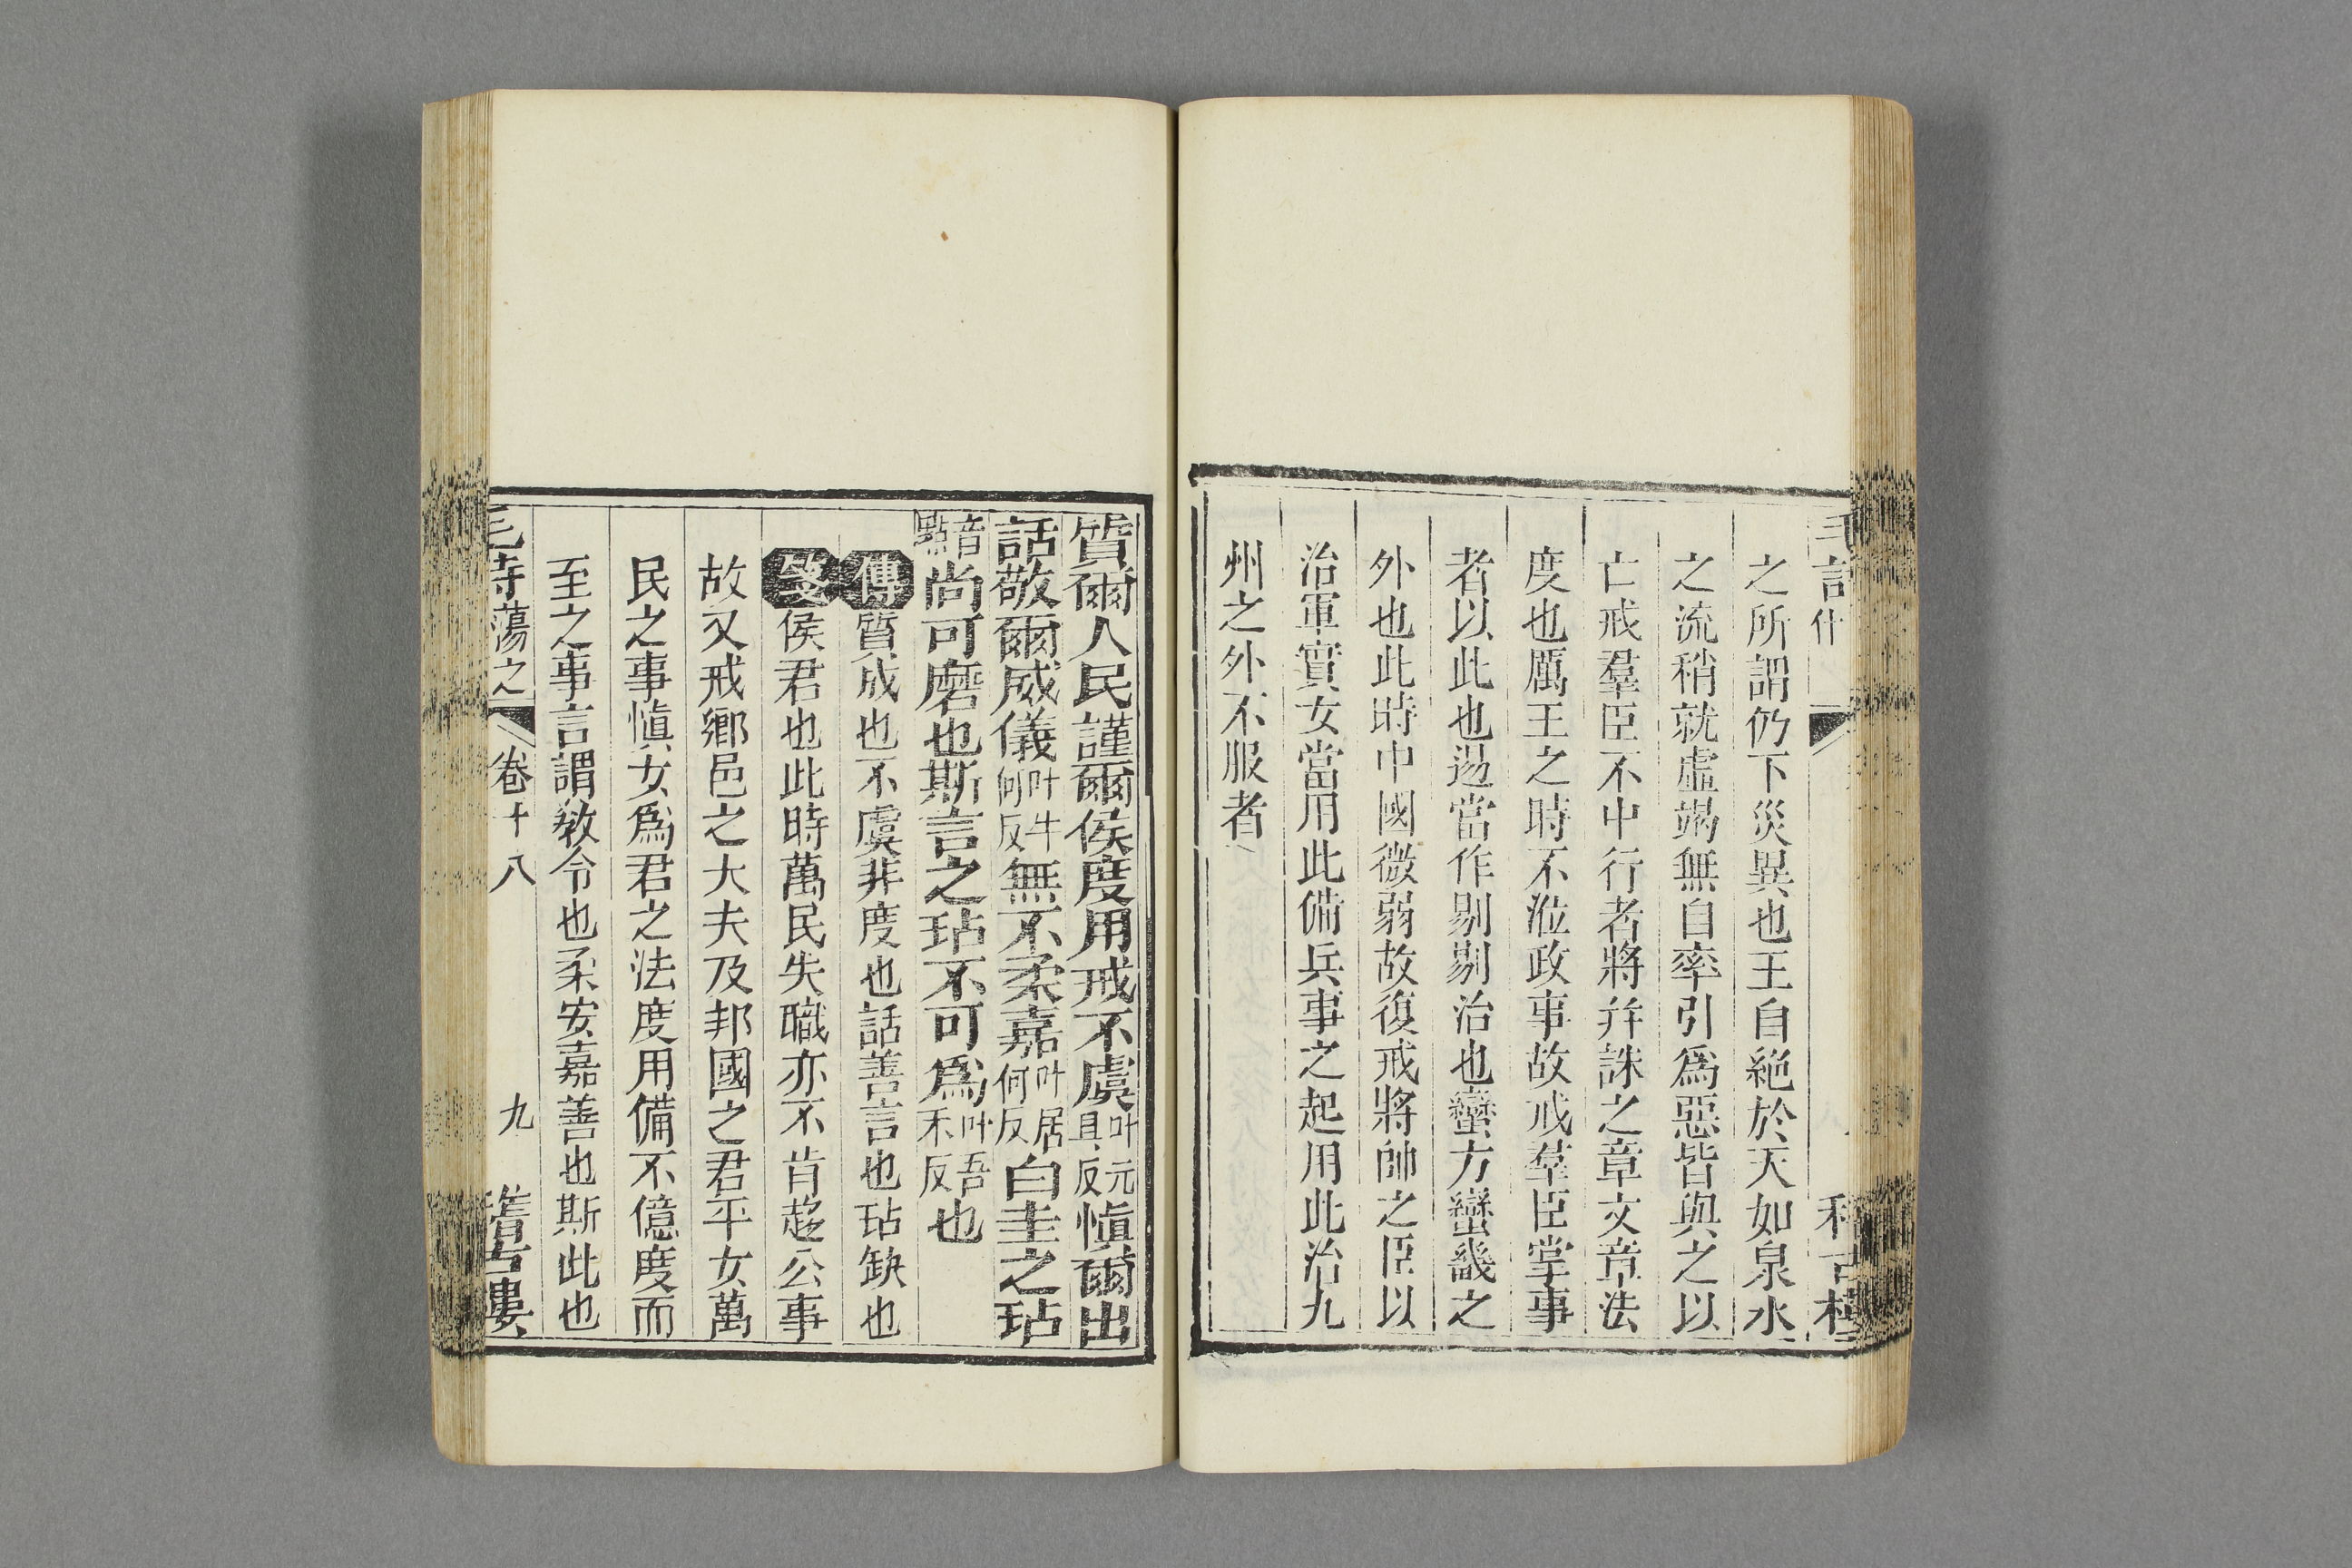 之所謂仍下災異也王自絕於天如泉水
之流稍就虛竭無自率引爲惡皆與之以
亡戒羣臣不中行者將幷誅之章文章法
度也厲王之時不涖政事故戒羣臣掌事
者以此也逷當作剔剔治也蠻方蠻畿之
外也此時中國微弱故復戒將帥之臣以
治軍實女當用此備兵事之起用此治九
州之外不服者
質爾人民謹爾侯度用戒不虞叶元具反愼爾出
話敬爾威儀叶牛何反無不柔嘉叶居何反白圭之玷
音點尚可磨也斯言之玷不可爲叶吾禾反也
傳質成也不虞非度也話善言也玷缺也
箋侯君也此時萬民失職亦不肯趨公事
故又戒鄉邑之大夫及邦國之君平女萬
民之事愼女爲君之法度用備不億度而
至之事言謂敎令也柔安嘉善也斯此也
毛詩蕩之 卷十八 九 稽古樓